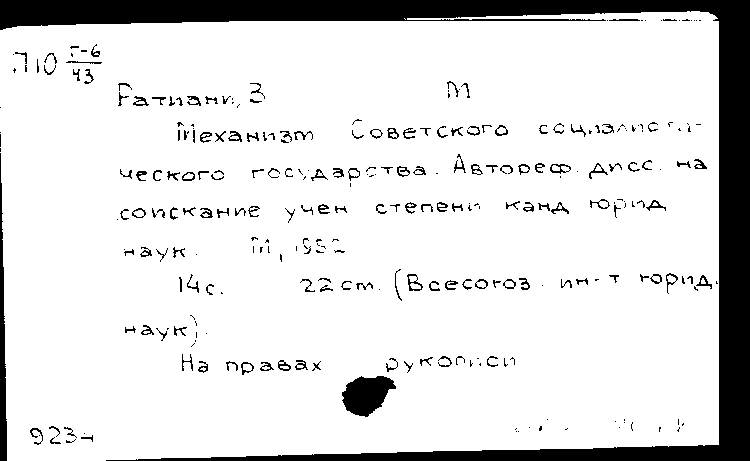 П10 Г-6/43
Ратиани, З М
Механизм Советского социалисти-
ческого государства. Автореф. дисс. на
соискание учен степени канд юрид
наук. М, 1952
14с. 22 cm. (Всесоюз. ин-т юрид.
наук).
На правах рукописи
923-